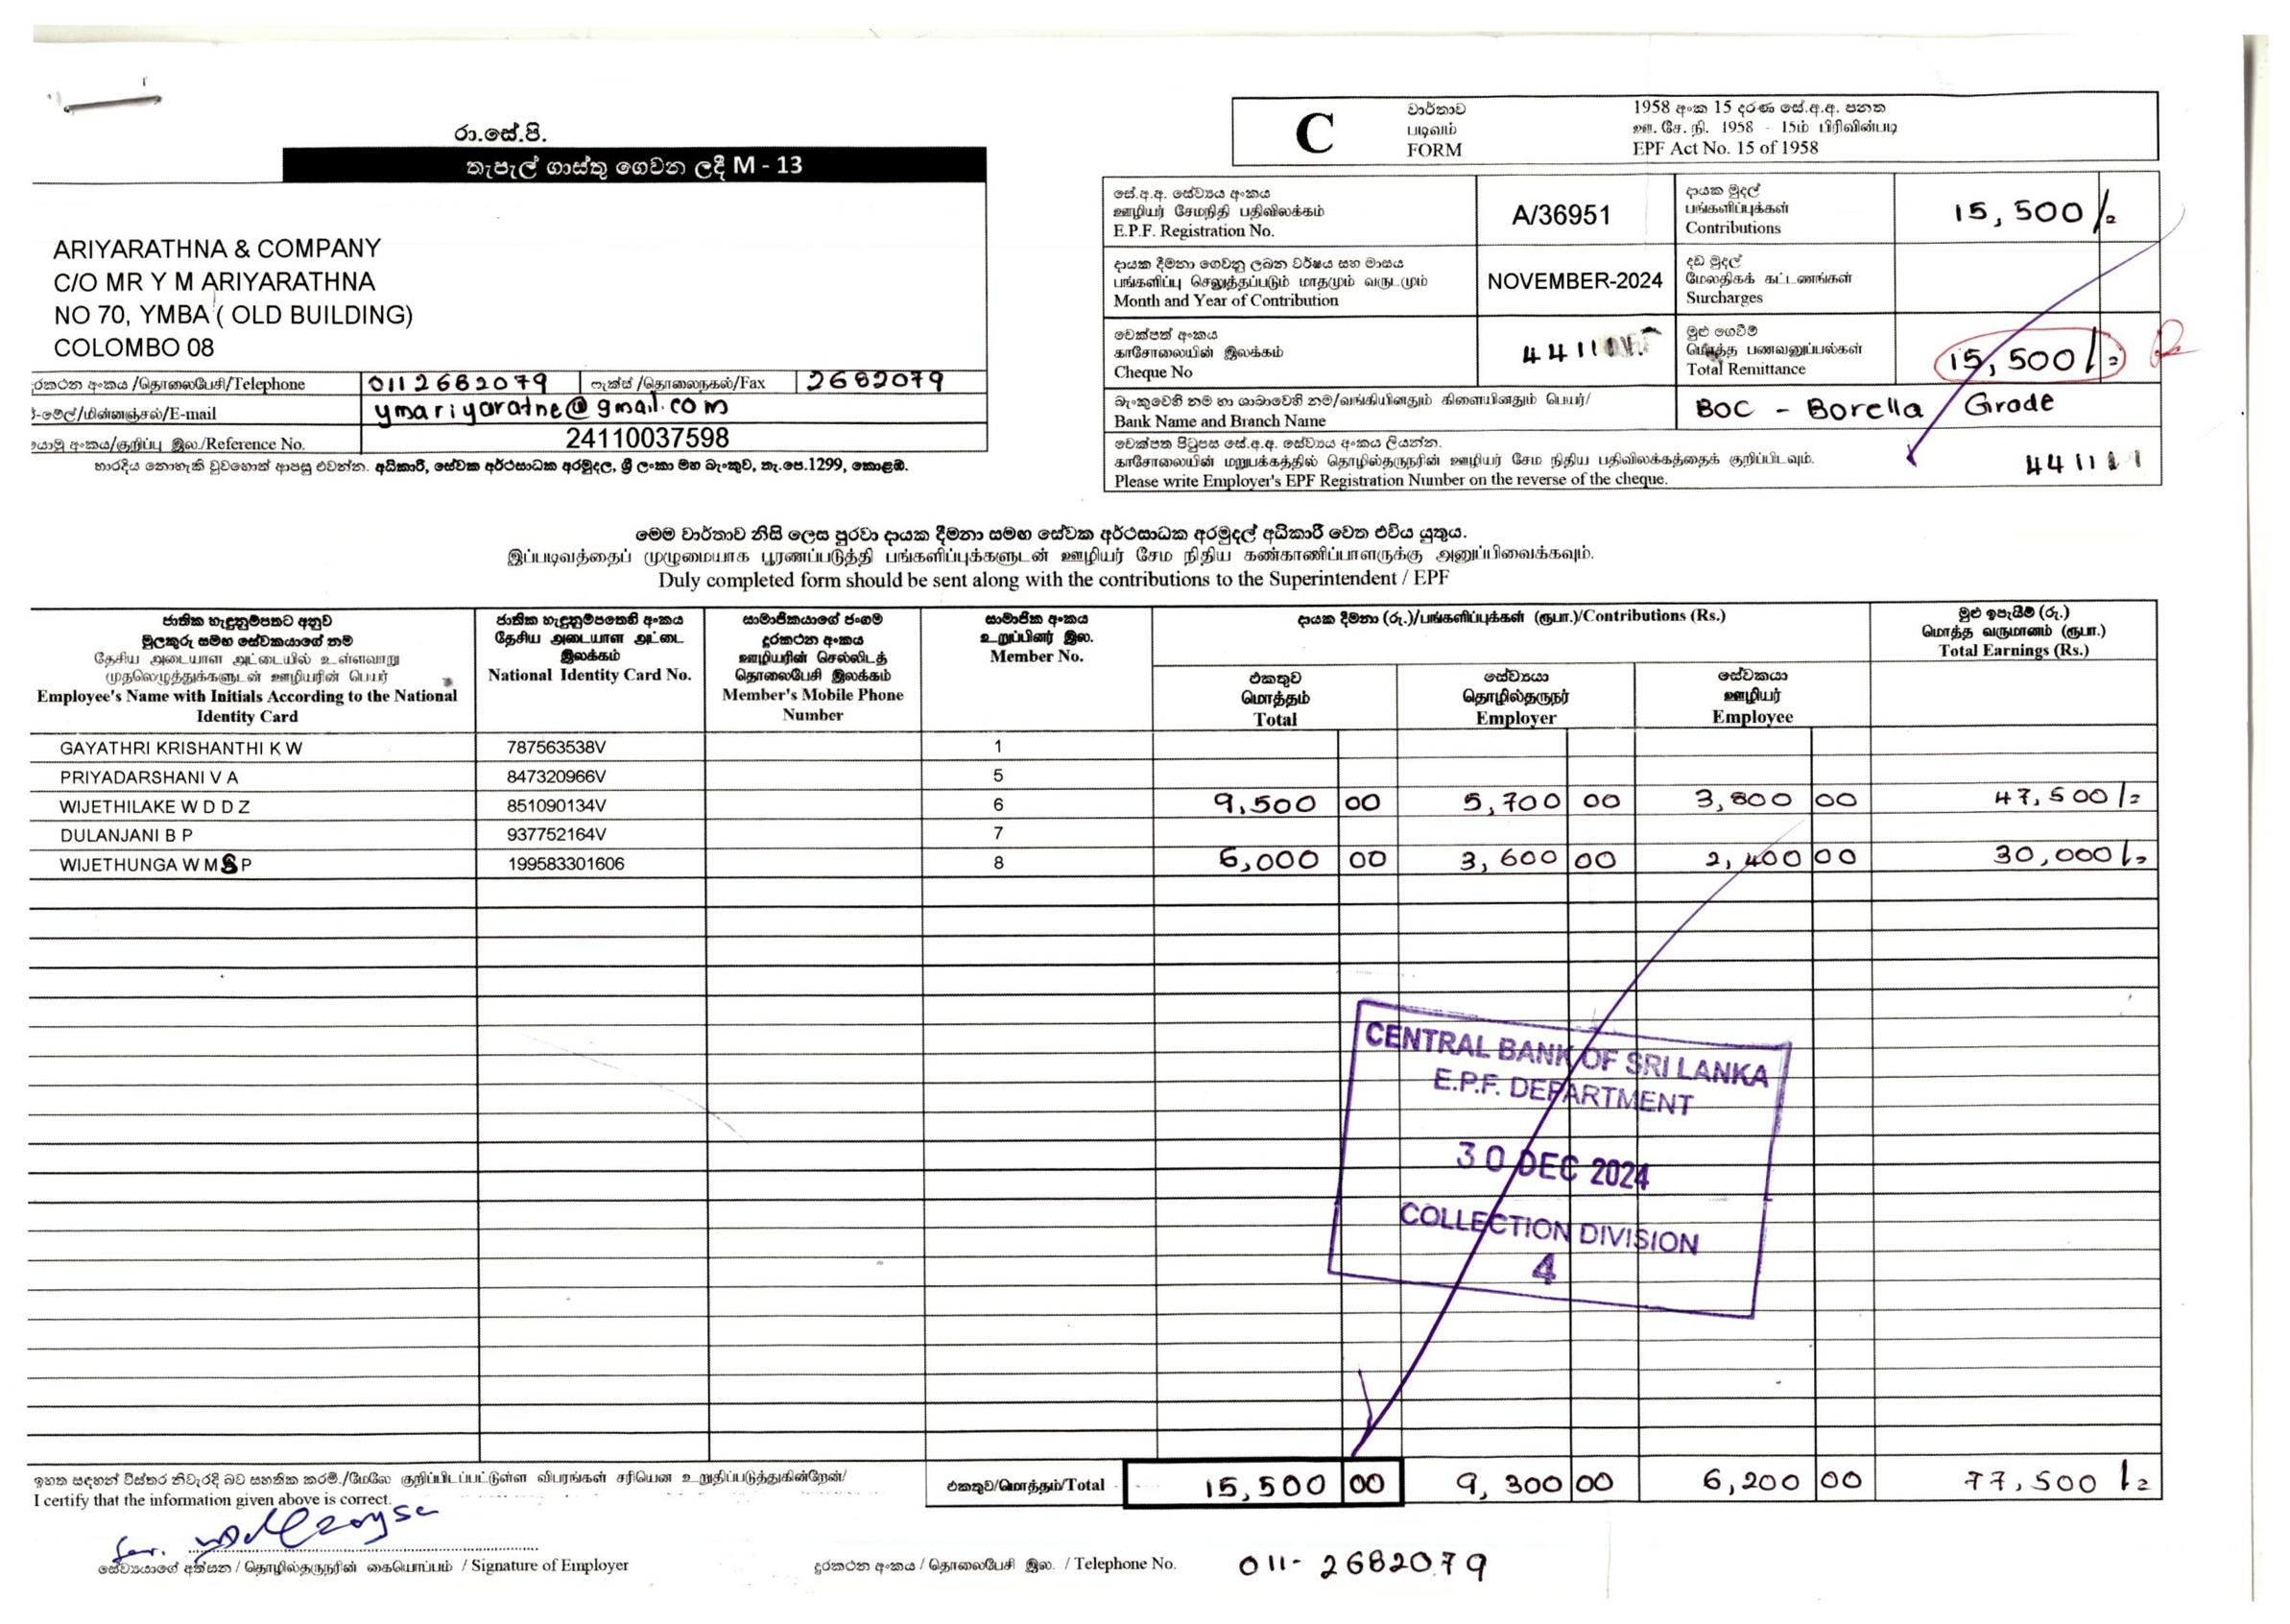 රා.සේ.පි.
තැපැල් ගාස්තු ගෙවන ලදී M - 13
ARIYARATHNA & COMPANY
C/O MR Y M ARIYARATHNA
NO 70, YMBA ( OLD BUILDING)
COLOMBO 08
දුරකථන අංකය /தொலைபேசி/Telephone 0112682079 ෆැක්ස් /தொலைநகல்/Fax 2682079
ඊ-මේල්/மின்னஞ்சல்/E-mail ymariyaratne@gmail.com
යොමු අංකය/குறிப்பு இல./Reference No. 24110037598
භාරදිය නොහැකි වුවහොත් ආපසු එවන්න. අධිකාරී, සේවක අර්ථසාධක අරමුදල, ශ්‍රී ලංකා මහ බැංකුව, තැ.පෙ.1299, කොළඹ.
C
වාර්තාව
படிவம்
FORM
1958 අංක 15 දරණ සේ.අ.අ. පනත
ஊ. சே. நி. 1958 - 15ம் பிரிவின்படி
EPF Act No. 15 of 1958
සේ.අ.අ. සේව්‍යය අංකය
ஊழியர் சேமநிதி பதிவிலக்கம்
E.P.F. Registration No.
A/36951
දායක මුදල්
பங்களிப்புக்கள்
Contributions
15,500/=
දායක දීමනා ගෙවනු ලබන වර්ෂය සහ මාසය
பங்களிப்பு செலுத்தப்படும் மாதமும் வருடமும்
Month and Year of Contribution
NOVEMBER-2024
දඩ මුදල්
மேலதிகக் கட்டணங்கள்
Surcharges
චෙක්පත් අංකය
காசோலையின் இலக்கம்
Cheque No
මුළු ගෙවීම්
மொத்த பணவனுப்பல்கள்
Total Remittance
15,500/=
බැංකුවෙහි නම හා ශාඛාවෙහි නම/வங்கியினதும் கிளையினதும் பெயர்/
Bank Name and Branch Name
BOC - Borella Grade
චෙක්පත පිටුපස සේ.අ.අ. සේව්‍යය අංකය ලියන්න.
காசோலையின் மறுபக்கத்தில் தொழில்தருநரின் ஊழியர் சேம நிதிய பதிவிலக்கத்தைக் குறிப்பிடவும்.
Please write Employer's EPF Registration Number on the reverse of the cheque.
මෙම වාර්තාව නිසි ලෙස පුරවා දායක දීමනා සමඟ සේවක අර්ථසාධක අරමුදල් අධිකාරී වෙත එවිය යුතුය.
இப்படிவத்தைப் முழுமையாக பூரணப்படுத்தி பங்களிப்புக்களுடன் ஊழியர் சேம நிதிய கண்காணிப்பாளருக்கு அனுப்பிவைக்கவும்.
Duly completed form should be sent along with the contributions to the Superintendent / EPF
ජාතික හැඳුනුම්පතට අනුව
මුලකුරු සමඟ සේවකයාගේ නම
தேசிய அடையாள அட்டையில் உள்ளவாறு
முதலெழுத்துக்களுடன் ஊழியரின் பெயர்
Employee's Name with Initials According to the National
Identity Card
ජාතික හැඳුනුම්පතෙහි අංකය
தேசிய அடையாள அட்டை
இலக்கம்
National Identity Card No.
සාමාජිකයාගේ ජංගම
දුරකථන අංකය
ஊழியரின் செல்லிடத்
தொலைபேசி இலக்கம்
Member's Mobile Phone
Number
සාමාජික අංකය
உறுப்பினர் இல.
Member No.
දායක දීමනා (රු.)/பங்களிப்புக்கள் (ரூபா.)/Contributions (Rs.)
එකතුව
மொத்தம்
Total
සේව්‍යයා
தொழில்தருநர்
Employer
සේවකයා
ஊழியர்
Employee
මුළු ඉපැයීම් (රු.)
மொத்த வருமானம் (ரூபா.)
Total Earnings (Rs.)
GAYATHRI KRISHANTHI K W 787563538V 1
PRIYADARSHANI V A 847320966V 5
WIJETHILAKE W D D Z 851090134V 6 9,500 00 5,700 00 3,800 00 47,500/=
DULANJANI B P 937752164V 7
WIJETHUNGA W M S P 199583301606 8 6,000 00 3,600 00 2,400 00 30,000/=
CENTRAL BANK OF SRI LANKA
E.P.F. DEPARTMENT
30 DEC 2024
COLLECTION DIVISION
4
ඉහත සඳහන් විස්තර නිවැරදි බව සහතික කරමි./மேலே குறிப்பிடப்பட்டுள்ள விபரங்கள் சரியென உறுதிப்படுத்துகின்றேன்/
I certify that the information given above is correct.
එකතුව/மொத்தம்/Total 15,500 00 9,300 00 6,200 00 77,500/=
for.
සේව්‍යයාගේ අත්සන / தொழில்தருநரின் கையொப்பம் / Signature of Employer
දුරකථන අංකය / தொலைபேசி இல. / Telephone No. 011-2682079